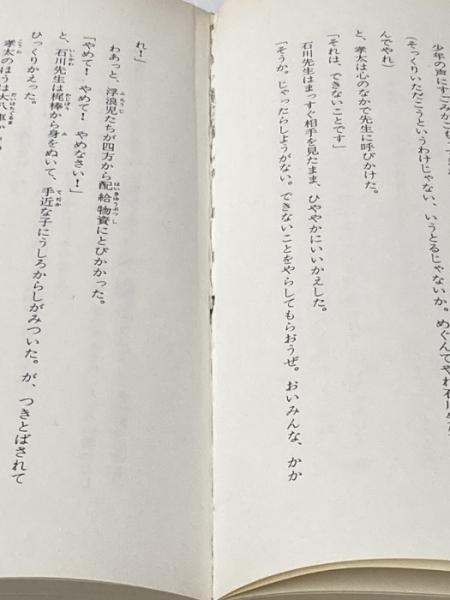 少年の声にすごみがこもって
（そっくりいただこうというわけじゃない、いうとるじゃないか。めぐんでやれ石川先
んでやれ）
と、孝太は心のなかで先生に呼びかけた。
「それは、できないことです」
石川先生はまっすぐ相手を見たまま、ひややかにいいかえした。
「そうか。じゃったらしようがない。できないことをやらしてもらおうぜ。おいみんな、かか
れ！」
わあっと、浮浪児たちが四方から配給物資にとびかかった。
「やめて！　やめて！　やめなさい！」
と、石川先生は梶棒から身をぬいて、手近な子にうしろからしがみついた。が、つきとばされて
ひっくりかえった。
孝太のほうは大八車か